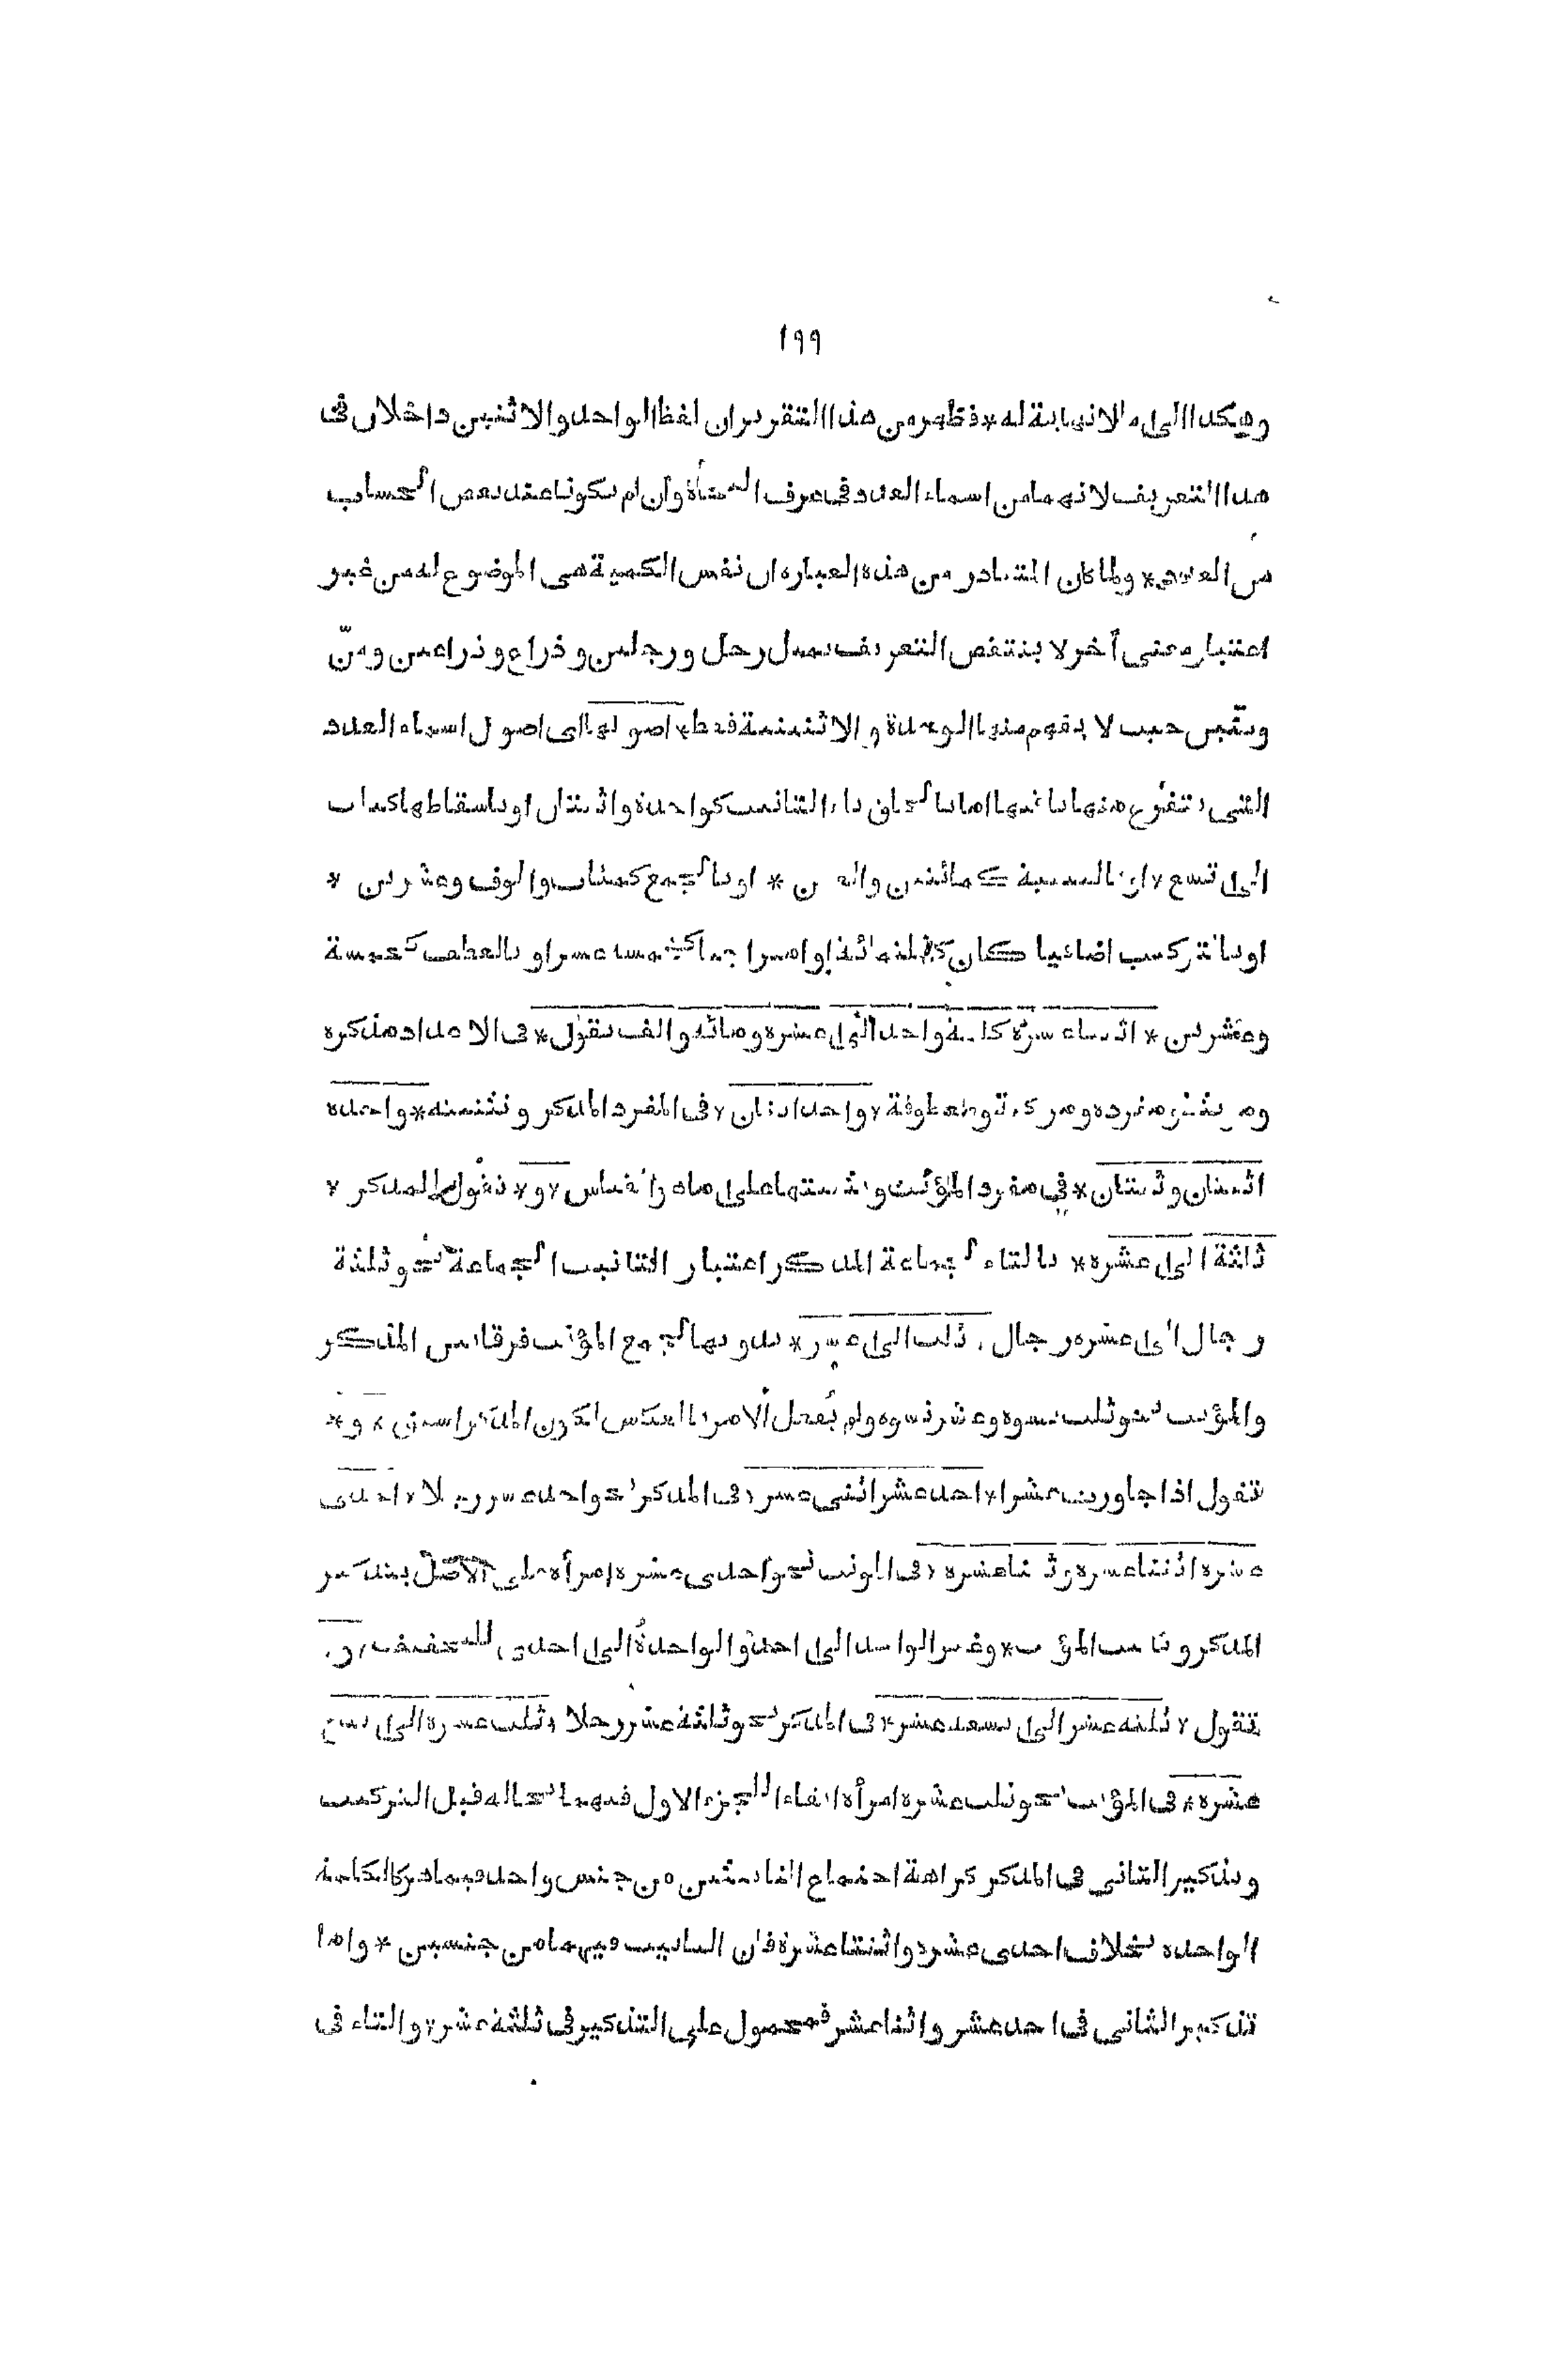 ١٩٩
وهكذا الى ما لا نهاية له * فظهر من هذا التقرير ان لفظ الواحد والاثنين داخلان فى
هذا التعريف لانهما من اسماء العدد فى عرف النحاة وان لم يكونا عند بعض الحساب
من العدد * ولما كان المتبادر من هذه العبارة ان نفس الكمية هى الموضوع له من غير
اعتبار معنى آخر لا ينتقض التعريف بمثل رجل ورجلين وذراع وذراعين ومنّ
ومنّين حيث لا يفهم منها الوحدة والاثنينية فقط * اصولها اى اصول اسماء العدد
التى يتفرع منها باقيها اما بالحاق تاء التانيث كواحدة واثنتان او باسقاطها كثلث
الى تسع * او بالتثنية كمائتين والفين * او بالجمع كمئات والوف وعشرين *
او بالتركيب اضافيا كان كثلثمائة او امتزاجيا كخمسة عشر او بالعطف كخمسة
وعشرين * اثنتا عشرة كلمة واحد الى عشرة ومائة والف تقول * فى الاعداد مذكرة
ومؤنثة ومفردة ومركبة ومعطوفة * واحد اثنان * فى المفرد المذكر وتثنيته * واحدة
اثنتان وثنتان * فى مفرد المؤنث وتثنيتها على ما هو القياس * و * تقول للمذكر *
ثلثة الى عشرة * بالتاء لجماعة المذكر اعتبار التانيث الجماعة نحو ثلثة
رجال الى عشرة رجال * ثلث الى عشر * بدونها لجمع المؤنث فرقا بين المذكر
والمؤنث نحو ثلث نسوة وعشر نسوة ولم يعمل الامر بالعكس لكون المذكر اسبق * و *
تقول اذا جاوزت عشرا * احد عشر اثنى عشر * فى المذكر نحو احد عشر رجلا * احدى
عشرة اثنتا عشرة وثنتا عشرة * فى المؤنث نحو احدى عشرة امرأة على الاصل بتذكير
المذكر وتانيث المؤنث * وغير الواحد الى احد والواحدة الى احدى للتخفيف * و *
تقول * ثلثة عشر الى تسعة عشر * فى المذكر نحو ثلثة عشر رجلا * ثلث عشرة الى تسع
عشرة * فى المؤنث نحو ثلث عشرة امرأة ابقاء للجزء الاول فيهما بحاله قبل التركيب
وتذكير الثانى فى المذكر كراهة اجتماع التانيثين من جنس واحد فيما هو كالكلمة
الواحدة بخلاف احدى عشرة واثنتا عشرة فان التانيث فيهما من جنسين * واما
تذكير الثانى فى احد عشر واثنا عشر فمحمول على التذكير فى ثلثة عشر * والتاء فى